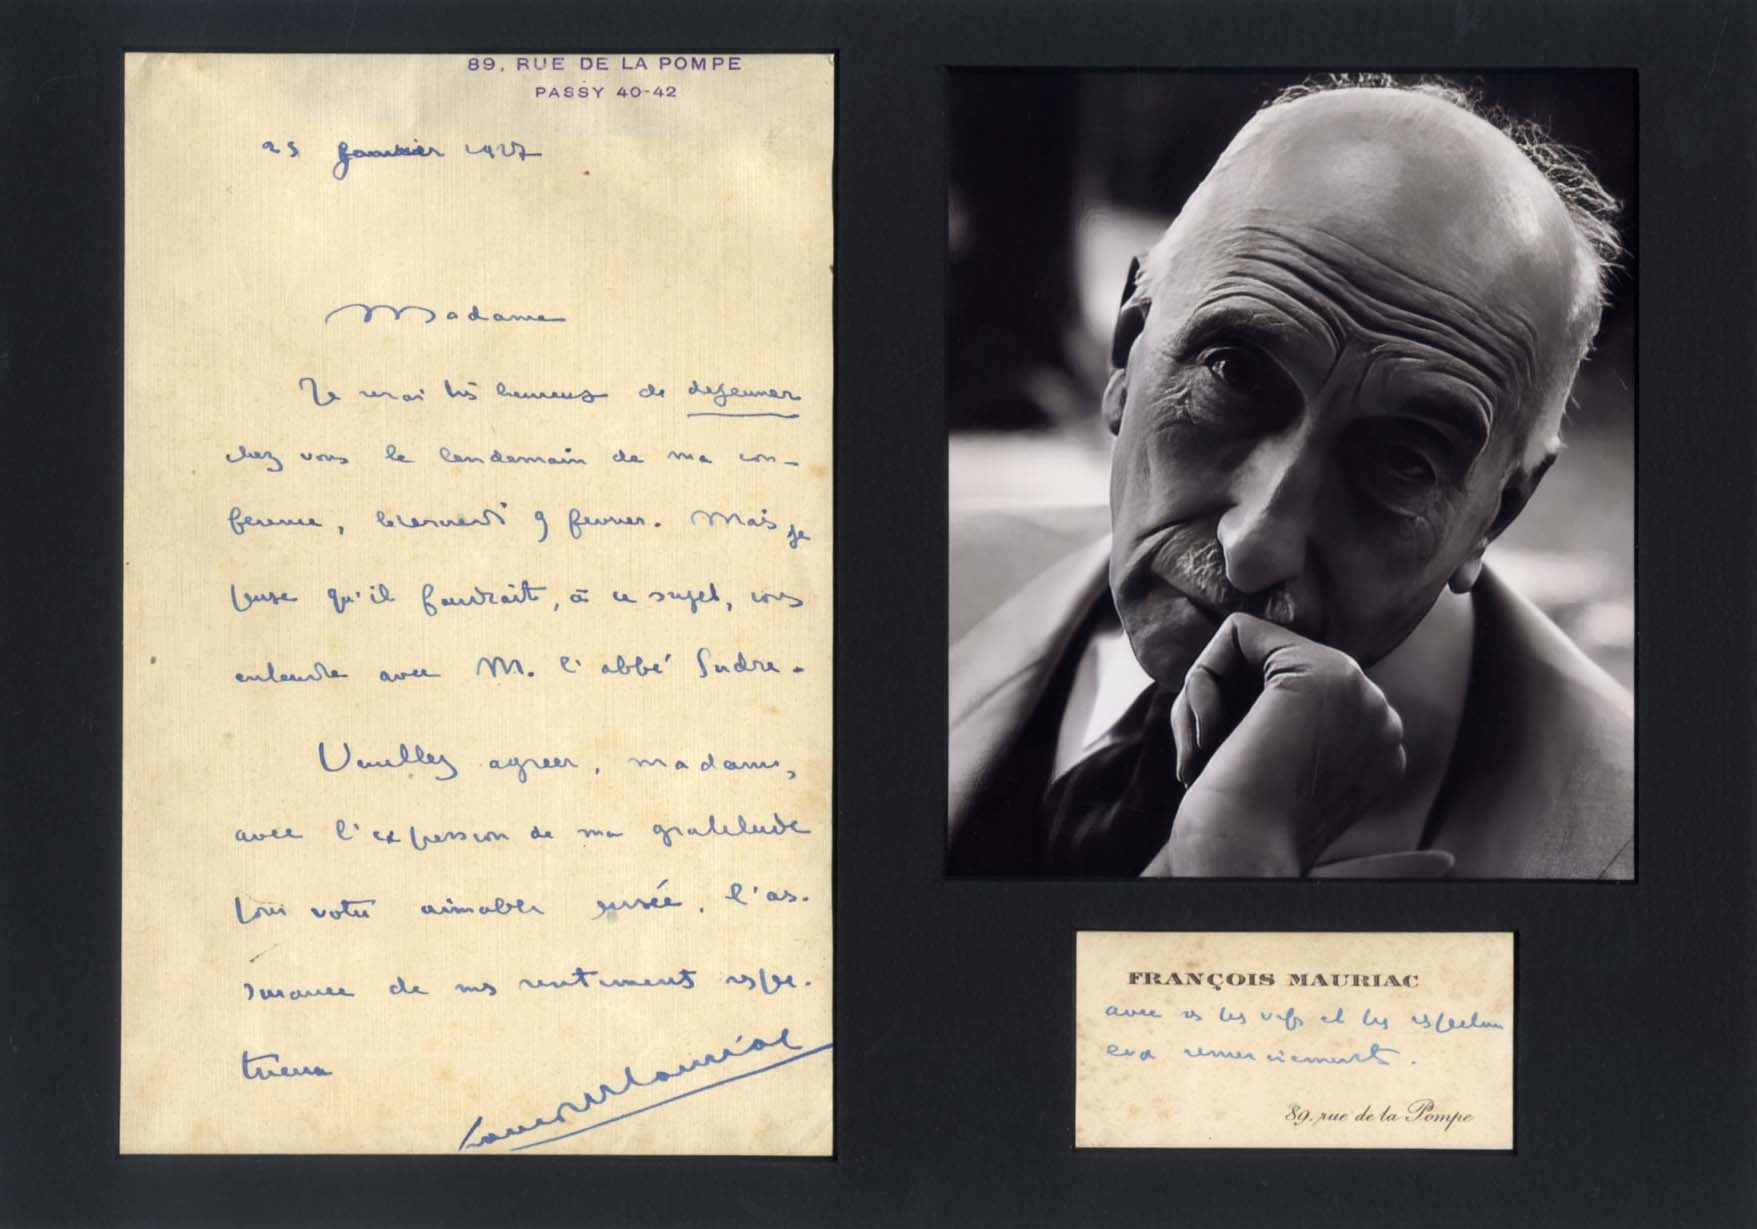 89, RUE DE LA POMPE
PASSY 40-42
25 janvier 1927
Madame
Je serai très heureux de déjeuner
chez vous le lendemain de ma con-
férence, le mercredi 9 février. Mais je
pense qu'il faudrait, à ce sujet, vous
entendre avec M. l'abbé Sudre.
Veuillez agréer, madame,
avec l'expression de ma gratitude
pour votre aimable pensée, l'as-
surance de mes sentiments respec-
tueux
François Mauriac
FRANÇOIS MAURIAC
avec ses très vifs et très respectu
eux remerciements.
89, rue de la Pompe